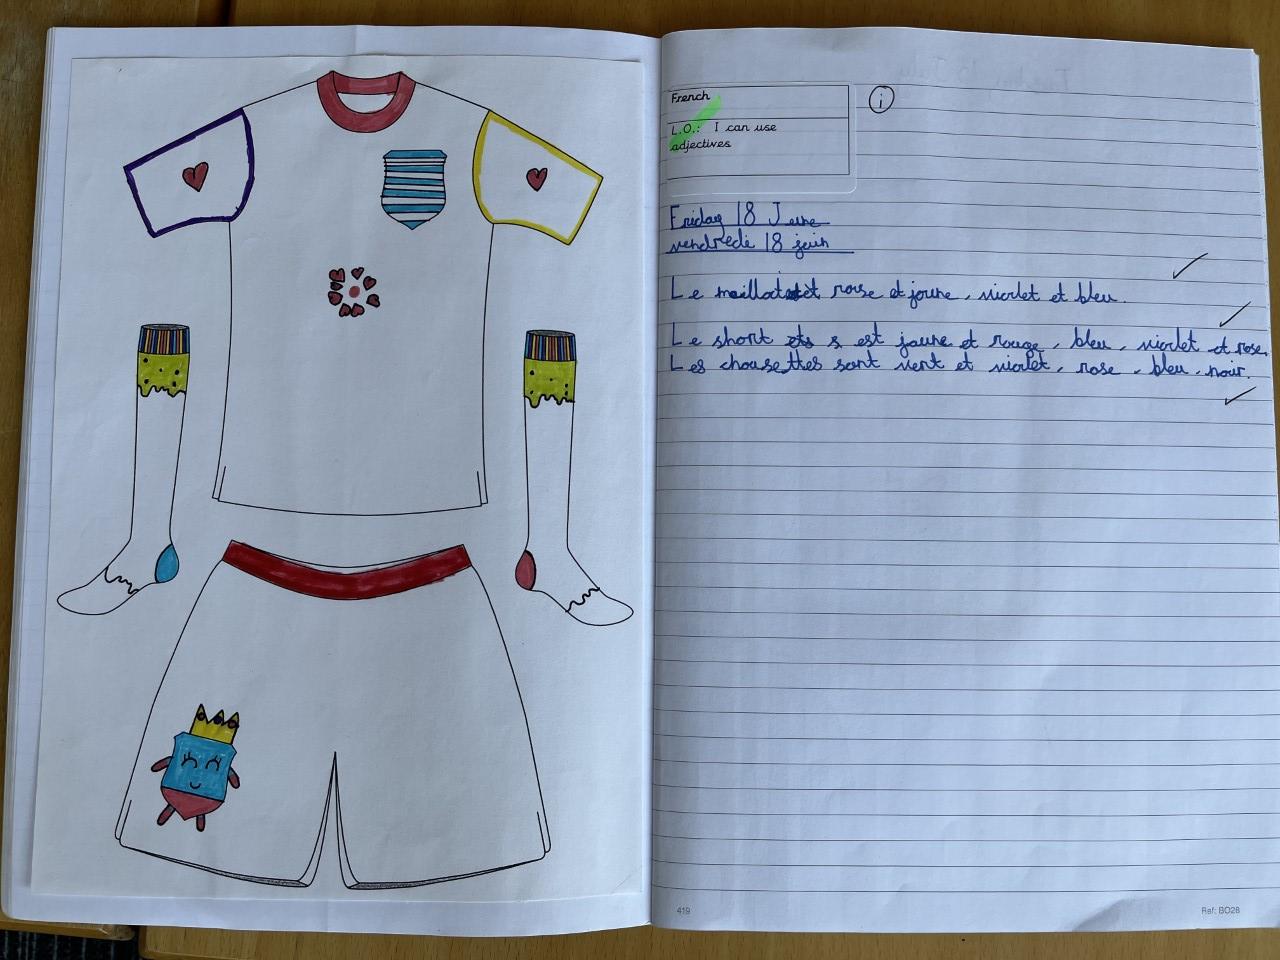 French
L.O.: I can use
adjectives
i
Friday 18 June
vendredi 18 juin
Le maillot est rose et joune, violet et bleu.
Le short s est jaune et rouge, bleu, violet et rose.
Les chousettes sont vert et violet, rose, bleu, noir.
419
Ref: BO28